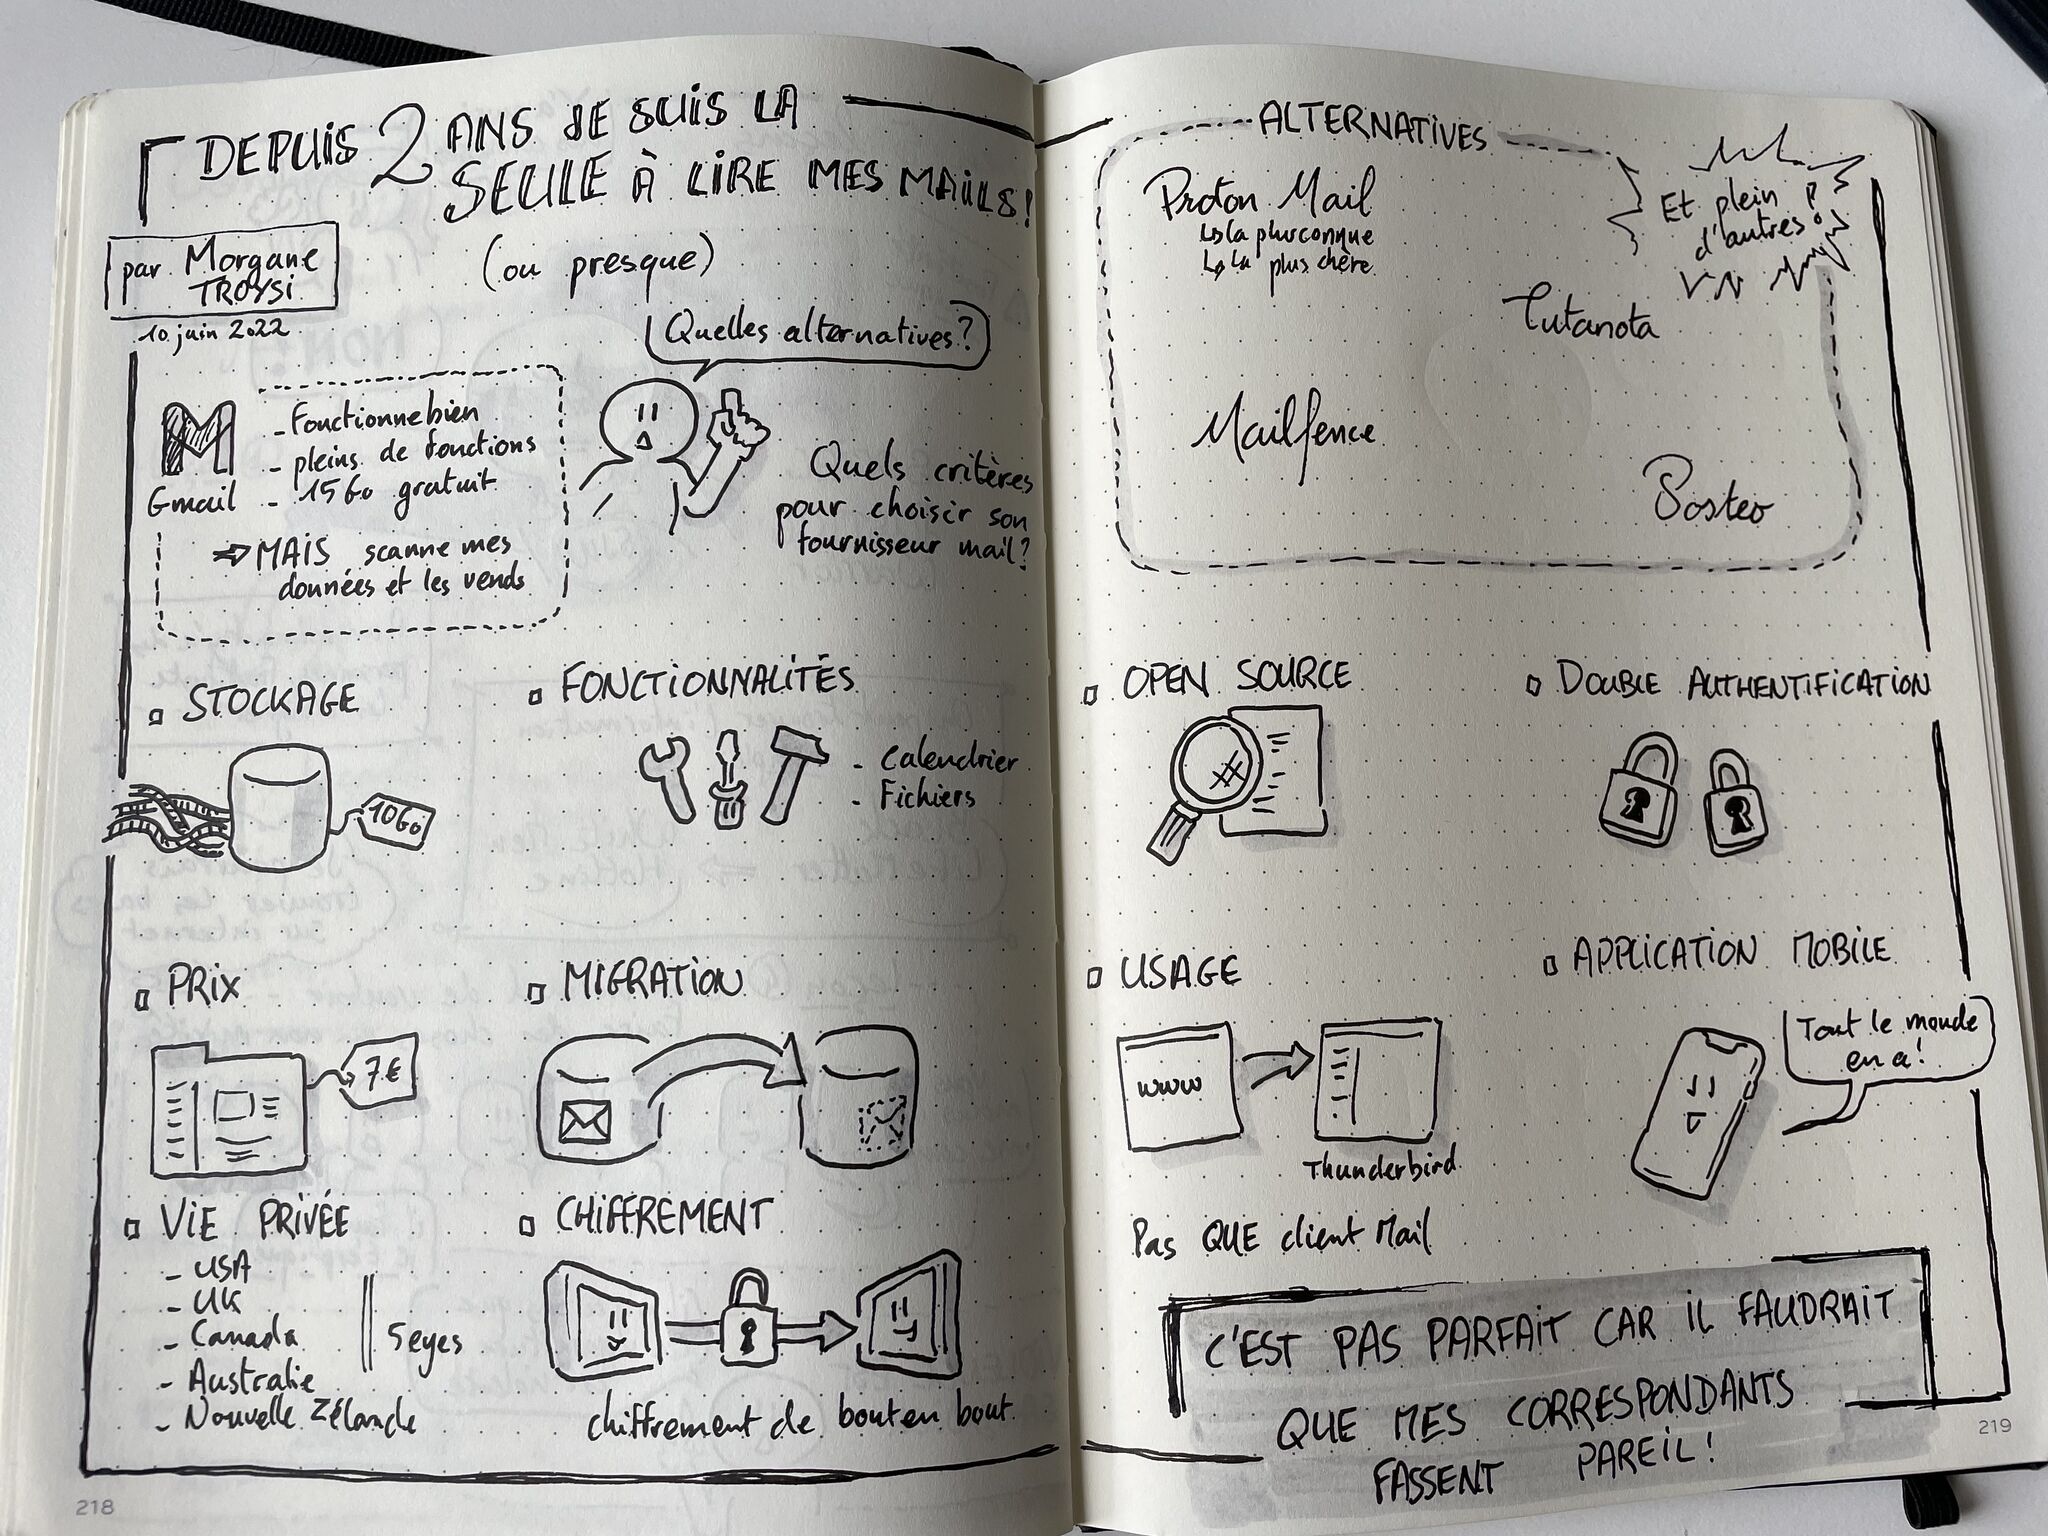 DEPUIS 2 ANS JE SUIS LA
SEULE À LIRE MES MAILS !
(ou presque)
par Morgane
TROYSI
10 juin 2022
Quelles alternatives ?
M
Gmail
- Fonctionne bien
- pleins de fonctions
- 15Go gratuit
⇒ MAIS scanne mes
données et les vends
Quels critères
pour choisir son
fournisseur mail ?
STOCKAGE
10Go
FONCTIONNALITÉS
- Calendrier
- Fichiers
PRIX
7€
MIGRATION
VIE PRIVÉE
- USA
- UK
- Canada
- Australie
- Nouvelle Zélande
5eyes
CHIFFREMENT
chiffrement de bout en bout.
218
ALTERNATIVES
Proton Mail
↳ la plus connue
↳ la plus chère
Et plein
d'autres !
Tutanota
Mailfence
Posteo
OPEN SOURCE
DOUBLE AUTHENTIFICATION
USAGE
www
Thunderbird
Pas QUE client Mail
APPLICATION MOBILE
Tout le monde
en a !
C'EST PAS PARFAIT CAR IL FAUDRAIT
QUE MES CORRESPONDANTS
FASSENT PAREIL !
219